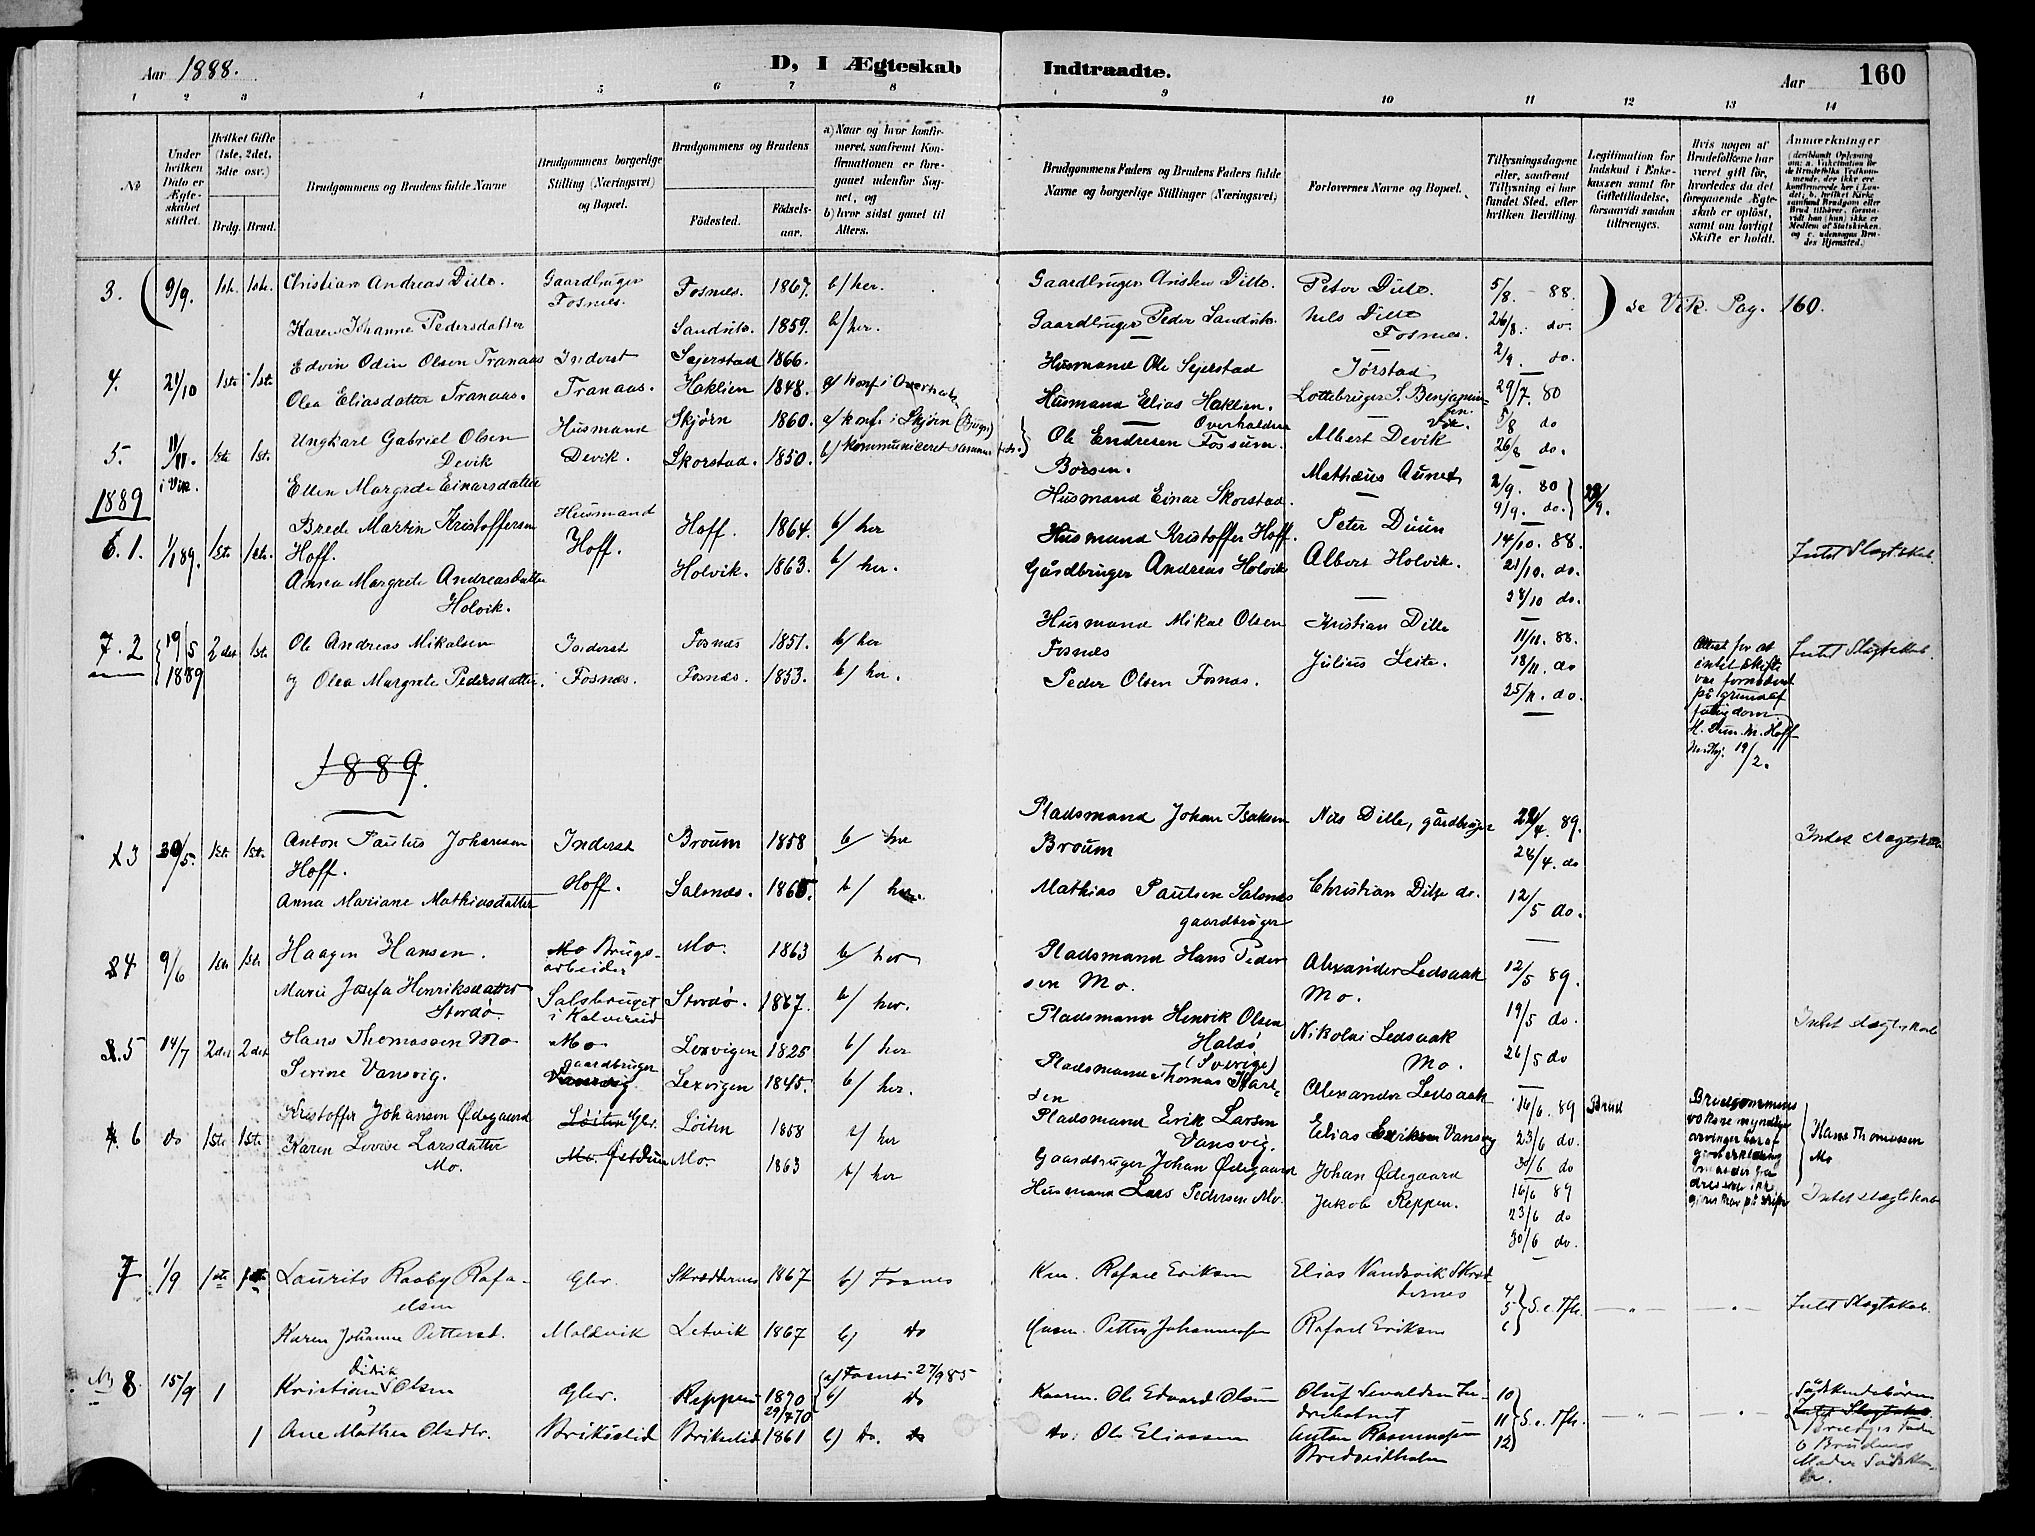 Aar 1888.
D, I Ægteskab Indtraadte.
Aar
160
1 2 3 4 5 6 7 8 9 10 11 12 13 14
No
Under hvilken Dato er Ægteskabet stiftet.
Hvilket Gifte (1ste, 2det, 3die osv.)
Brdg. Brud.
Brudgommens og Brudens fulde Navne
Brudgommens borgerlige Stilling (Næringsvei) og Bopæl.
Brudgommens og Brudens
Födested.
Födselsaar.
a) Naar og hvor konfirmeret, saafremt Konfirmationen er foregaaet udenfor Sognet, og
b) hvor sidst gaaet til Alters.
Brudgommens Faders og Brudens Faders fulde Navne og borgerlige Stillinger (Næringsvei)
Forlovernes Navne og Bopæl.
Tillysningsdagene eller, saafremt Tillysning ei har fundet Sted, efter hvilken Bevilling.
Legitimation for Indskud i Enkekassen samt for Giftetilladelse, forsaavidt saadan tiltrænges.
Hvis nogen af Brudefolkene har været gift för, hvorledes da det foregaaende Ægteskab er oplöst, samt om lovligt Skifte er holdt.
Anmærkninger
3. 9/9. 1ste. 1ste. Christian Andreas Dille. Gaardbruger Fosnes. Fosnes. 1867. b/ her. Gaardbruger Dille. Peter Dille. 5/8. - 88. se Vik. Pag. 160.
Karen Johanne Pedersdatter Sandvika. 1859. b/ her. Gaardbruger Peder Sandvika. Nils Dille Fosnes. 26/8. do.
2/9. do.
4. 21/10 1ste 1ste Edvin Odin Olsen Tranaas Inderst Sejerstad 1866. Husmand Ole Sejerstad Jørstad
Olea Eliasdatter Tranaas. Tranaas. Haklien 1848. a/ konf i Overhalla Husmand Elias Haklien. Overhalden Lottebruger S. Benjaminsen. Vik. 29/7. 80
5/8 do
26/8 do.
5. 11/11. i Vik. 1ste 1ste Ungkarl Gabriel Olsen Devik Husmand Devik. Skjørn 1860. a/ konf. i Skjørn (Bjugn) Ole Endresen Fossum. Børsen. Albert Devik
Ellen Margrete Einarsdatter Skorstad. 1850. b/ Kommuniceret sammesteds. Husmand Einar Skorstad. Mathæus Aunet 2/9. 80
9/9. do.
1889
6. 1. 1/1 89. 1ste 1ste. Bred Martin Kristoffersen Hoff. Husmand Hoff. Hoff. 1864. b/ her Husmand Kristoffer Hoff. Peter Duun 14/10. 88. Intet Slægtskab.
Anna Margrete Andreasdatter Holvik. Holvik. 1863. b/ her. Gårdbruger Andreas Holvik Albert Holvik. 21/10. do.
28/10 do.
7. 2 19/5 1889 2det 1ste Ole Andreas Mikalsen Inderst Fosnes 1851. b/ her Husmand Mikal Olsen Fosnes Kristian Dille 11/11. 88. Intet Slægtskab.
og Olea Margrete Pedersdatter. Fosnæs. Fosnæs. 1853. b/ her. Peder Olsen Fosnæs. Julius Leite. 18/11. do
25/11. do.
Attest for at intet skifte var fornødent på grund af fattigdom. H. Duun. M. Hoff 19/2.
1889.
3 30/5. 1ste 1ste. Anton Paulus Johansen Hoff. Inderst Hoff. Broum 1858 b/ her Pladsmand Johan Isaksen Broum Nils Dille, gårdbruger 22/4. 89. Intet slægtskab
28/4. do
Anna Mariane Mathiasdatter Salsnæs. 1865. b/ her. Mathias Paulsen Salsnes gaardbruger Christian Dille do. 12/5 do.
4 9/6 1ste 1ste Haagen Hansen. Mo Brugsarbeider Mo. 1863 b/ her Pladsmand Hans Pedersen Mo. Alexander Ledsaak Mo. 12/5 89.
Marie Josefa Henriksdatter Stordø. Salsbruget i Kolvereid Stordø. 1867. b/ her. Pladsmand Henrik Olsen (Sverige) Nikolai Ledsaak Mo. 19/5 do. Intet slægtskab
26/5 do
5 14/7 2det 2det Hans Thomassen Mo Mo gaardbruger Lexvigen 1825 b/ her Pladsmand Thomas Alexander Ledsaak 16/6. 89 Brud
Serine Vansvig. Vansvig Lexvigen 1845. b/ her. Pladsmand Erik Larsen Vansvig. Elias Eriksen Vansvig 23/6 do.
30/6 do
Brudgommens voksne myndige arvinger har
Hans Thomassen Mo
6 do 1ste 1ste Kristoffer Johansen Ødegaard Løiten Gbr. Løiten 1858 b/ her Gaardbruger Johan Ødegaard Johan Ødegaard 16/6 89 Intet slægtskab
Karen Lovise Larsdatter Mo. Mo. 1863 b/ her Husmand Lars Pedersen Mo. Jakob Reppen. 23/6 do
30/6 do.
7 1/9 1ste 1ste Laurits Raaby Rafaelsen Gbr. Skrædternes 1867 b) Fosnes Rafael Eriksen Elias Vandsvik 4 5 6 S. e. Tfh. Intet Slægtskab.
Karen Johanne Pettersd. Moldvik Letvik 1867 b) do Petter Johannessen Rafael Eriksen
No 8 15/9 1 Kristian Didrik Olsen Gbr. Reppen 1870 29/4 70 (a) Fosnes 27/9 85 b) Do Ole Edvard Olsen 10 11 12 S. e. Tfh. Sødskendebørn
1 Ane Mathea Olsdtr. Brikselid Brikselid 1861 b) Do. do do: Ole Eliassen Anton Rasmussen Bredeidholm